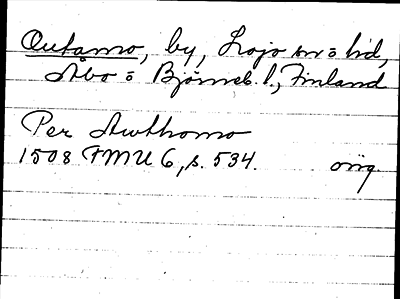 Outamo, by, Lojo sn = hd,
Åbo = Björneb. l., Finland
Per Awthomo
1508 FMU 6, s. 534. orig.